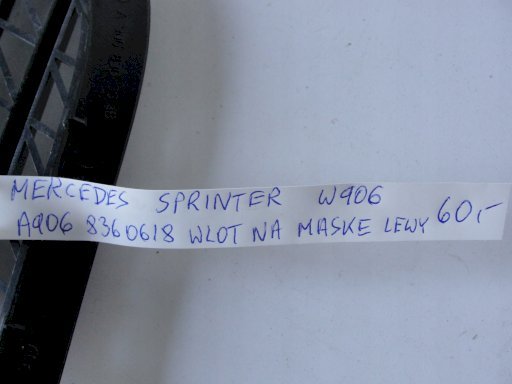 MERCEDES SPRINTER W906
A906 8360618 WLOT NA MASKE LEWY 60,-